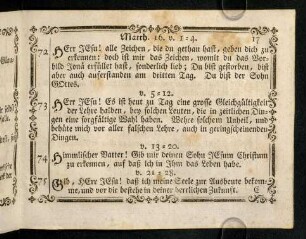 Matth. 16. v. 1-4. 17
72 HErr JEsu! alle Zeichen, die du gethan hast, geben dich zu
erkennen: doch ist mir das Zeichen, womit du das Vor-
bild Jonä erfüllet hast, sonderlich lieb; Du bist gestorben, bist
aber auch auferstanden am dritten Tag. Du bist der Sohn
GOttes.
v. 5-12.
73 HErr JEsu! Es ist heut zu Tag eine grosse Gleichgültigkeit
der Lehre halben, bey solchen Leuten, die in zeitlichen Din-
gen eine sorgfältige Wahl haben. Wehre solchem Unheil, und
behüte mich vor aller falschen Lehre, auch in geringscheinenden
Dingen.
v. 13-20.
74 Himmlischer Vatter! Gib mir deinen Sohn JEsum Christum
zu erkennen, auf daß ich in Ihm das Leben habe.
v. 21-28.
75 Gib, HErr JEsu! daß ich meine Seele zur Ausbeute bekom-
me, und vor dir bestehe in deiner herrlichen Zukunft.